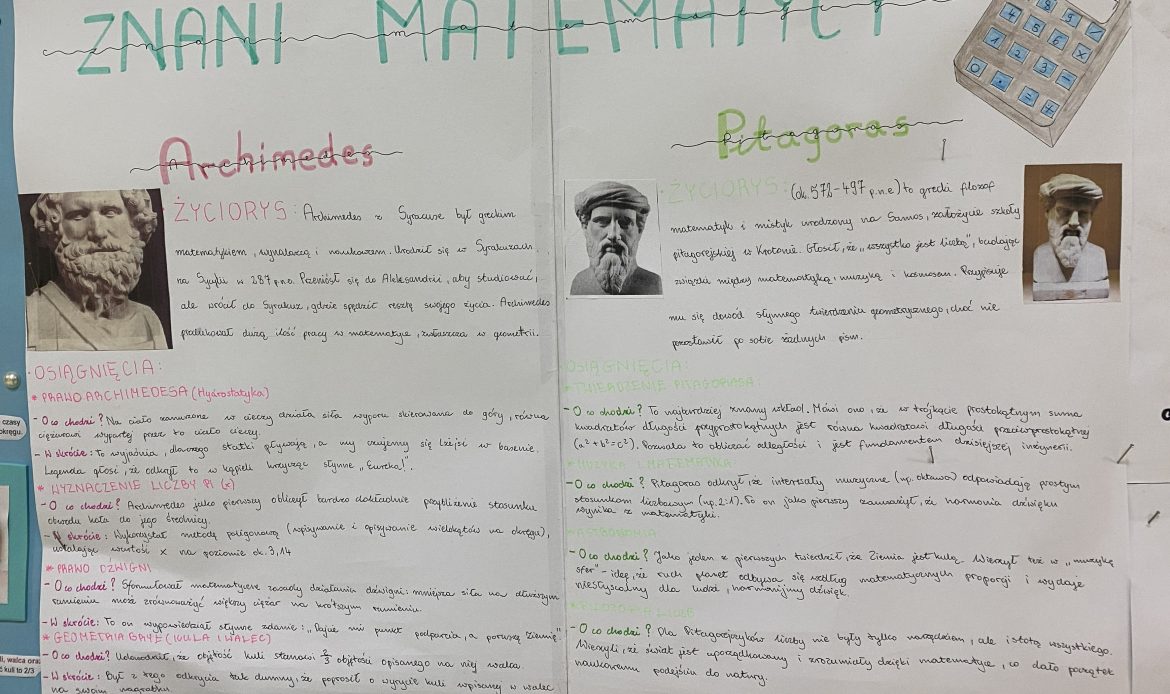 ZNANI MATEMATYCY
znani matematycy
Archimedes
Archimedes
ŻYCIORYS: Archimedes z Syracuse był greckim
matematykiem, wynalazcą i naukowcem. Urodził się w Syrakuzach
na Sycylii w 287 p.n.e. Przeniósł się do Aleksandrii, aby studiować,
ale wrócił do Syrakuz, gdzie spędził resztę swojego życia. Archimedes
publikował dużą ilość pracy w matematyce, zwłaszcza w geometrii.
OSIĄGNIĘCIA:
* PRAWO ARCHIMEDESA (Hydrostatyka)
- O co chodzi? Na ciało zanurzone w cieczy działa siła wyporu skierowana do góry, równa
ciężarowi wypartej przez to ciało cieczy.
- W skrócie: To wyjaśnia, dlaczego statki pływają, a my czujemy się lżejsi w basenie.
Legenda głosi, że odkrył to w kąpieli krzycząc słynne „Eureka!".
* WYZNACZENIE LICZBY PI (π)
- O co chodzi? Archimedes jako pierwszy obliczył bardzo dokładnie przybliżenie stosunku
obwodu koła do jego średnicy.
- W skrócie: Wykorzystał metodę poligonową (wpisywanie i opisywanie wielokątów na okręgu),
ustalając wartość π na poziomie ok. 3,14
* PRAWO DŹWIGNI
- O co chodzi? Sformułował matematyczne zasady działania dźwigni: mniejsza siła na dłuższym
ramieniu może zrównoważyć większy ciężar na krótszym ramieniu.
- W skrócie: To on wypowiedział słynne zdanie: „Dajcie mi punkt podparcia, a poruszę Ziemię"
* GEOMETRIA BRYŁ (KULA I WALEC)
- O co chodzi? Udowodnił, że objętość kuli stanowi 2/3 objętości opisanego na niej walca.
- W skrócie: Był z tego odkrycia tak dumny, że poprosił o wyrycie kuli wpisanej w walec
na swoim nagrobku.
Pitagoras
Pitagoras
ŻYCIORYS: (ok. 572-497 p.n.e) to grecki filozof
matematyk i mistyk urodzony na Samos, założyciel szkoły
pitagorejskiej w Krotonie. Głosił, że „wszystko jest liczbą", budując
związki między matematyką, muzyką i kosmosem. Przypisuje
mu się dowód słynnego twierdzenia geometrycznego, choć nie
pozostawił po sobie żadnych pism.
OSIĄGNIĘCIA:
* TWIERDZENIE PITAGORASA:
- O co chodzi? To najbardziej znany wkład. Mówi ono, że w trójkącie prostokątnym suma
kwadratów długości przyprostokątnych jest równa kwadratowi długości przeciwprostokątnej
(a²+b²=c²). Pozwala to obliczać odległości i jest fundamentem dzisiejszej inżynierii.
* MUZYKA I MATEMATYKA
- O co chodzi? Pitagoras odkrył, że interwały muzyczne (np. oktawa) odpowiadają prostym
stosunkom liczbowym (np. 2:1). To on jako pierwszy zauważył, że harmonia dźwięku
wynika z matematyki.
* ASTRONOMIA
- O co chodzi? Jako jeden z pierwszych twierdził, że Ziemia jest kulą. Wierzył też w „muzykę
sfer" - ideę, że ruch planet odbywa się według matematycznych proporcji i wydaje
niesłyszalny dla ludzi, harmonijny dźwięk.
* FILOZOFIA LICZB
- O co chodzi? Dla Pitagorejczyków liczby nie były tylko narzędziem, ale istotą wszystkiego.
Wierzyli, że świat jest uporządkowany i zrozumiały dzięki matematyce, co dało początek
naukowemu podejściu do natury.
4 5
1 2 3 -
0 . = +
czasy
okręgu.
li, walca oraz
ć kuli to 2/3